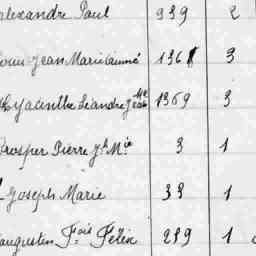 alexandre Paul 939 2
Louis Jean Marie Aimé 1361 3
Hyacinthe Léandre Jh Mie 1369 3
Prosper Pierre Jh Mie 3 1
Joseph Marie 33 1
augustin Fois Félix 289 1